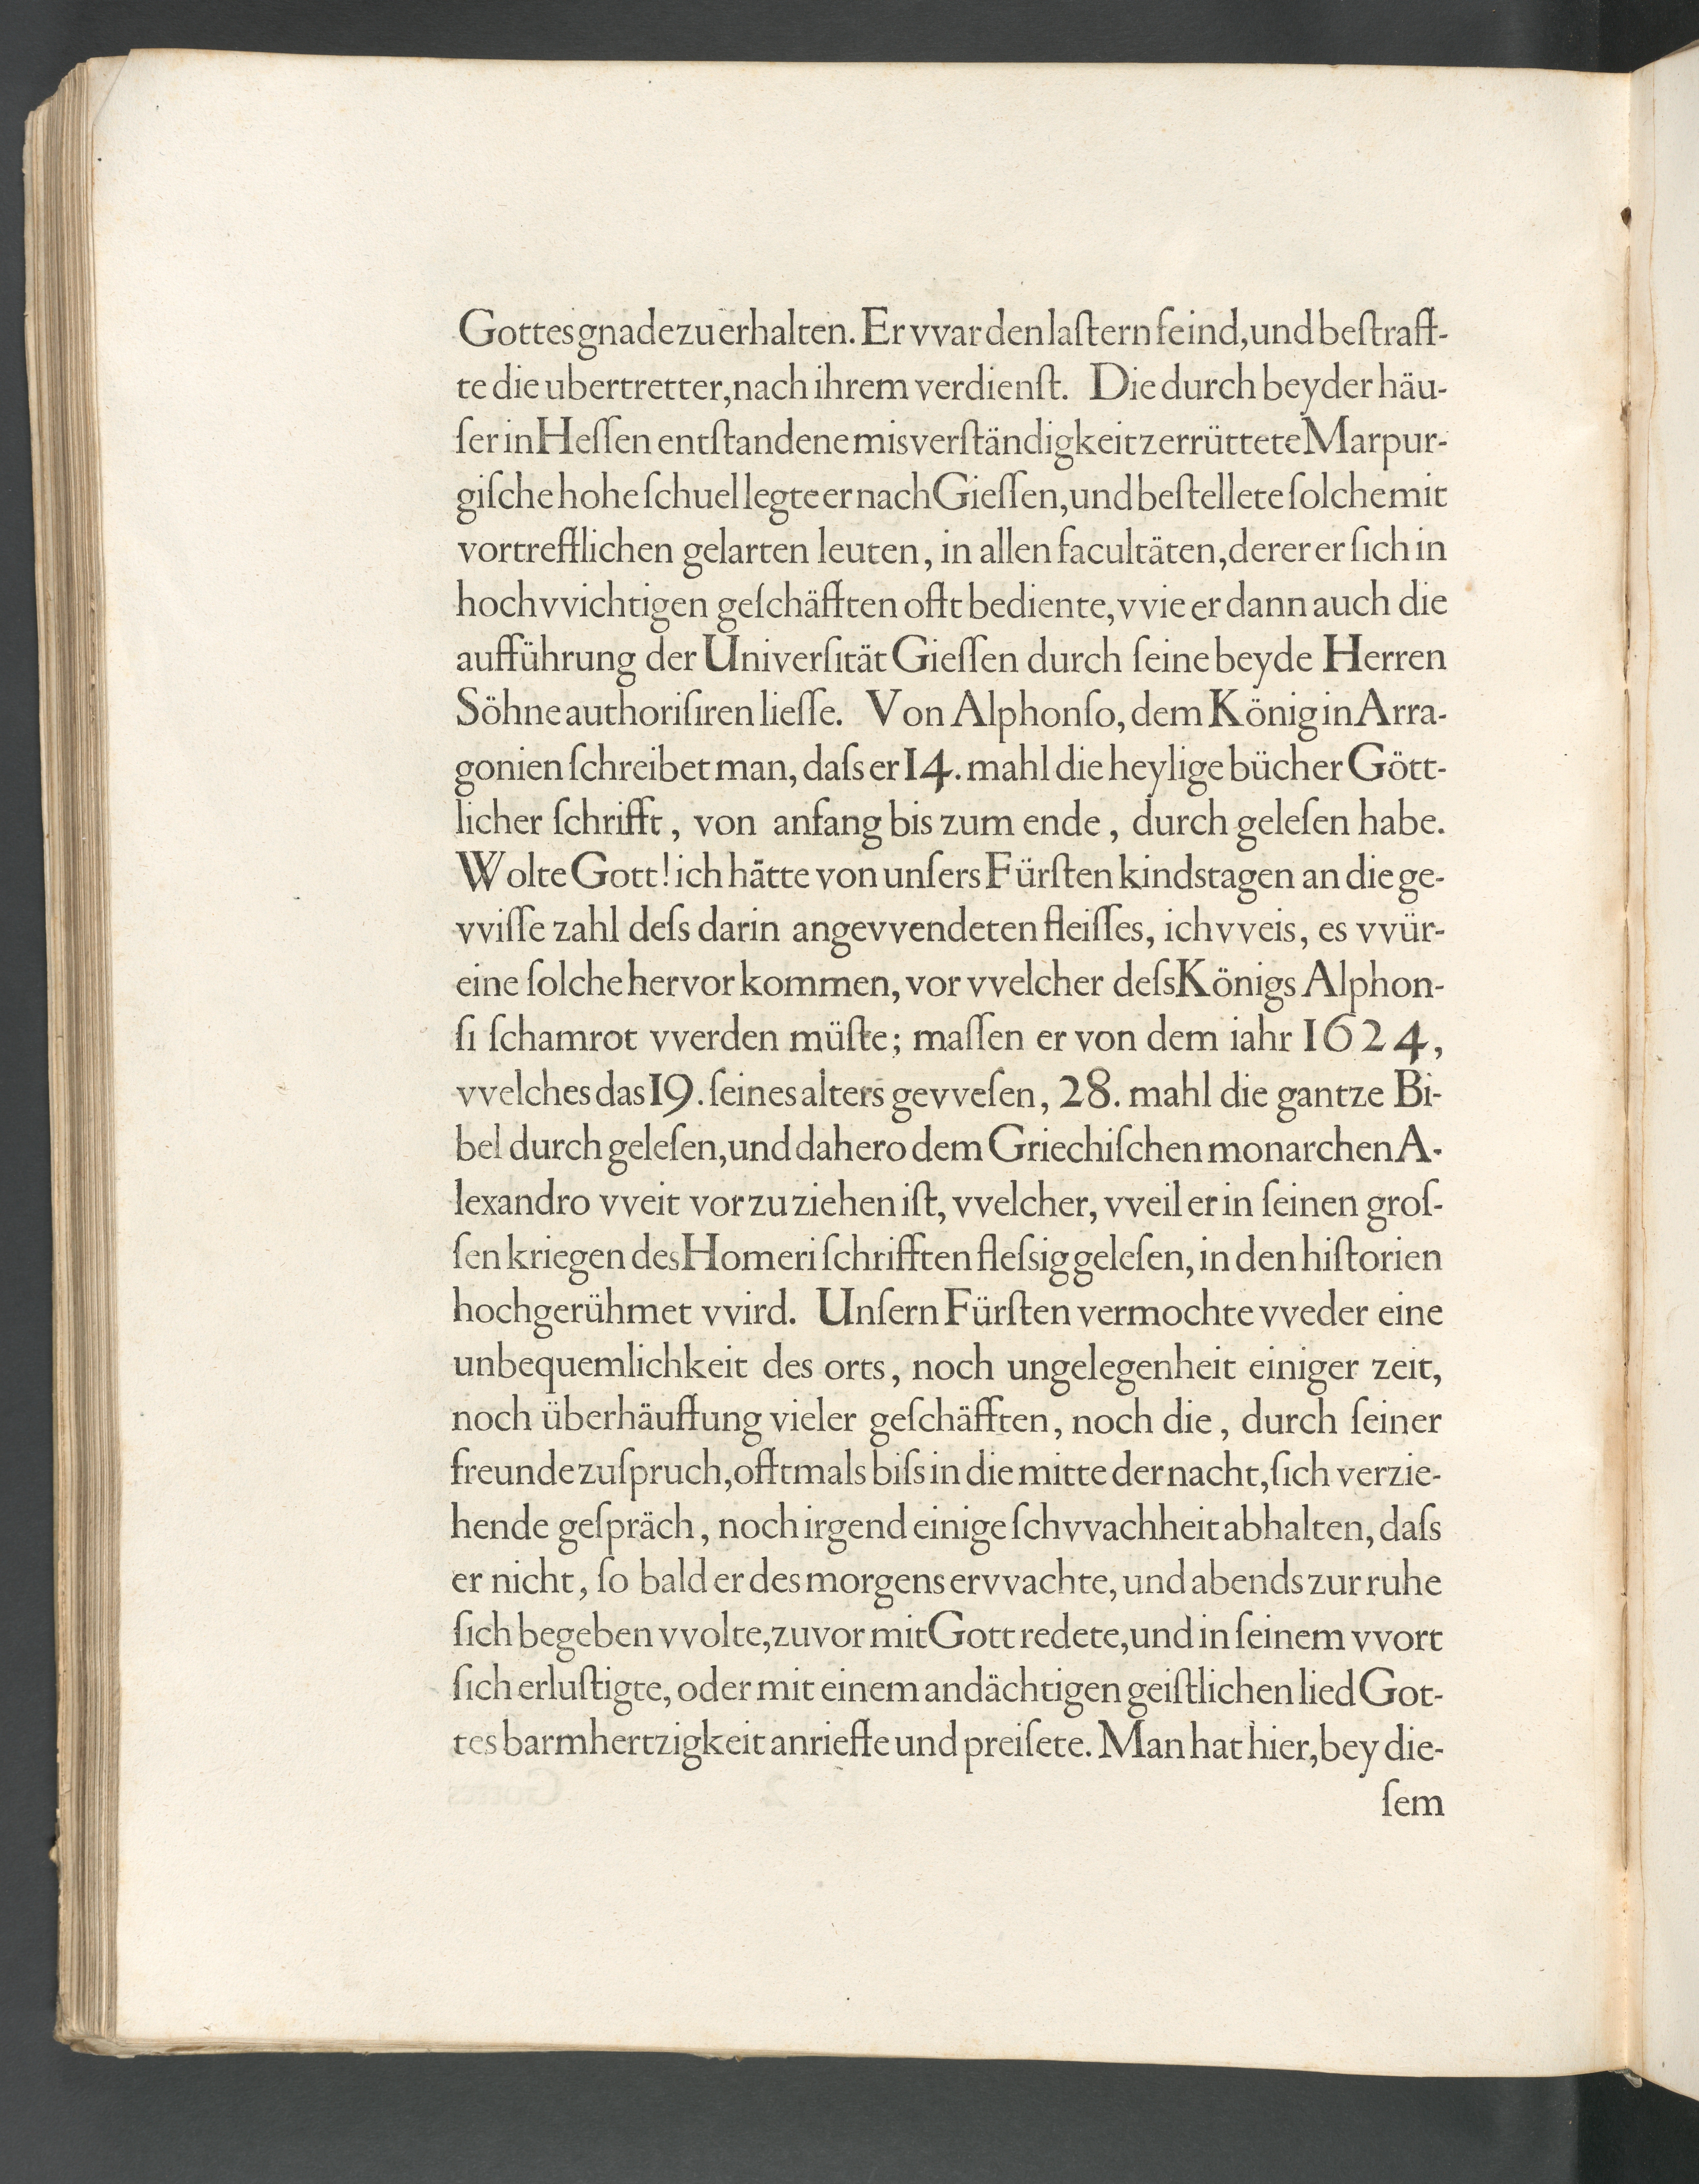 Gottes gnade zu erhalten. Er vvar den laſtern feind, und beſtraff-
te die ubertretter, nach ihrem verdienſt. Die durch beyder häu-
ſer in Heſſen entſtandene misverſtändigkeit zerrüttete Marpur-
giſche hohe ſchuel legte er nach Gieſſen, und beſtellete ſolche mit
vortrefflichen gelarten leuten, in allen facultäten, derer er ſich in
hochvvichtigen geſchäfften offt bediente, vvie er dann auch die
aufführung der Univerſität Gieſſen durch ſeine beyde Herren
Söhne authoriſiren lieſſe. Von Alphonſo, dem König in Arra-
gonien ſchreibet man, daſs er 14. mahl die heylige bücher Gött-
licher ſchrifft, von anfang bis zum ende, durch geleſen habe.
Wolte Gott! ich hätte von unſers Fürſten kindstagen an die ge-
vviſſe zahl deſs darin angevvendeten fleiſſes, ich vveis, es vvür-
eine ſolche hervor kommen, vor vvelcher deſs Königs Alphon-
ſi ſchamrot vverden müſte; maſſen er von dem iahr 1624,
vvelches das 19. ſeines alters gevveſen, 28. mahl die gantze Bi-
bel durch geleſen, und dahero dem Griechiſchen monarchen A-
lexandro vveit vor zu ziehen iſt, vvelcher, vveil er in ſeinen groſ-
ſen kriegen des Homeri ſchrifften fleſsig geleſen, in den hiſtorien
hochgerühmet vvird. Unſern Fürſten vermochte vveder eine
unbequemlichkeit des orts, noch ungelegenheit einiger zeit,
noch überhäuffung vieler geſchäfften, noch die, durch ſeiner
freunde zuſpruch, offtmals biſs in die mitte der nacht, ſich verzie-
hende geſpräch, noch irgend einige ſchvvachheit abhalten, daſs
er nicht, ſo bald er des morgens ervvachte, und abends zur ruhe
ſich begeben vvolte, zuvor mit Gott redete, und in ſeinem vvort
ſich erluſtigte, oder mit einem andächtigen geiſtlichen lied Got-
tes barmhertzigkeit anrieffe und preiſete. Man hat hier, bey die-
ſem